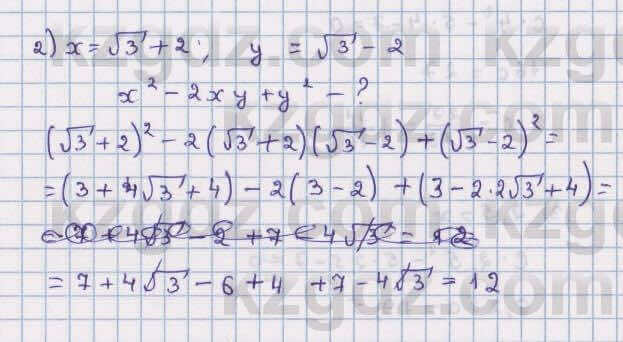 2) x = √3 + 2; y = √3 - 2
x² - 2xy + y² - ?
(√3 + 2)² - 2(√3 + 2)(√3 - 2) + (√3 - 2)² =
= (3 + 4√3 + 4) - 2(3 - 2) + (3 - 2·2√3 + 4) =
= 7 + 4√3 - 2 + 7 - 4√3 = 12
= 7 + 4√3 - 6 + 4 + 7 - 4√3 = 12
kzgdz.com